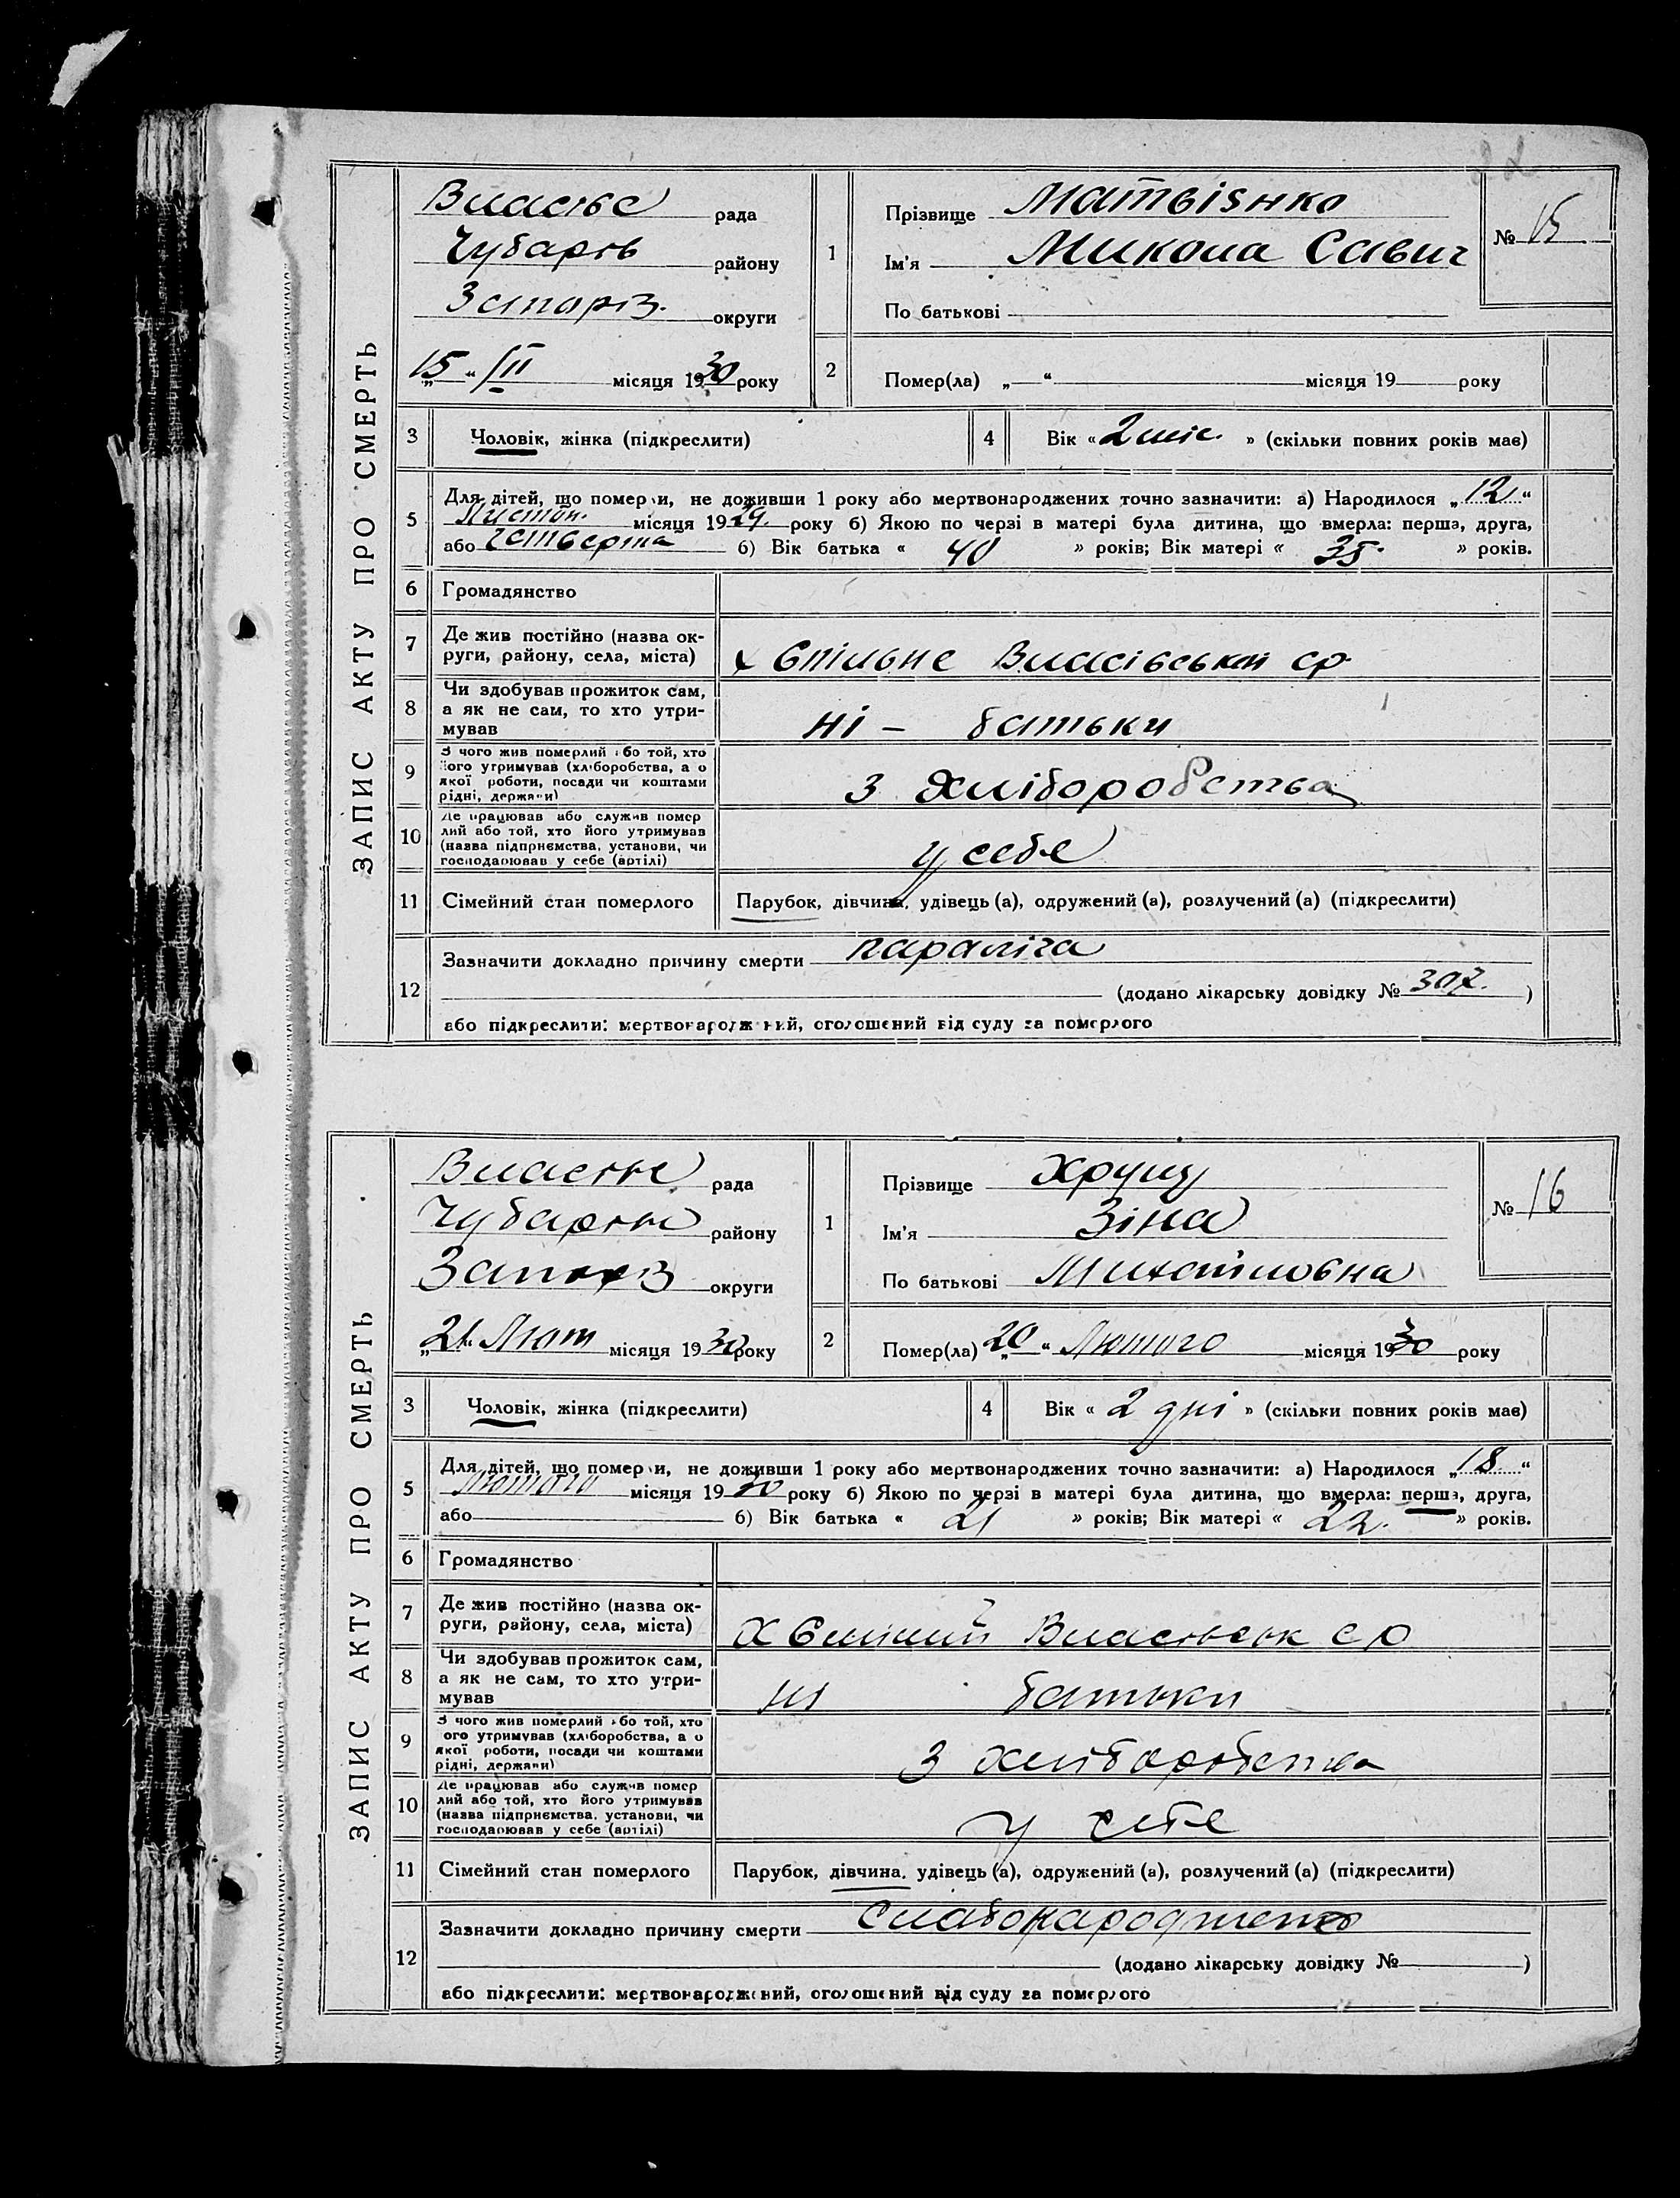 ЗАПИС АКТУ ПРО СМЕРТЬ
Власівс рада
Чубарів району
Запоріз. округи
„15“ II місяця 1930 року
1
Прізвище Матвієнко
Ім'я Микола Савич
По батькові
№ 15
2
Помер(ла) „ “ місяця 19 року
3 Чоловік, жінка (підкреслити)
4 Вік «2 міс.» (скільки повних років має)
5 Для дітей, що померли, не доживши 1 року або мертвонароджених точно зазначити: а) Народилося „12“
Листоп. місяця 1929. року б) Якою по черзі в матері була дитина, що вмерла: перша, друга,
або четверта б) Вік батька « 40 » років; Вік матері « 35. » років.
6 Громадянство
7 Де жив постійно (назва ок-
руги, району, села, міста) х Спільне Власівської ср
8 Чи здобував прожиток сам,
а як не сам, то хто утри-
мував ні – батьки
9 З чого жив померлий або той, хто
його утримував (хліборобства, а о
якої роботи, посади чи коштами
рідні, держави) з Хліборобства
10 Де працював або служив помер
лий або той, хто його утримував
(назва підприємства, установи, чи
господарював у себе (артілі) у себе
11 Сімейний стан померлого Парубок, дівчина, удівець (а), одружений (а), розлучений (а) (підкреслити)
12 Зазначити докладно причину смерти параліча
(додано лікарську довідку № 307. )
або підкреслити: мертвонароджений, оголошений від суду за померлого
ЗАПИС АКТУ ПРО СМЕРТЬ
Власівс рада
Чубарівс району
Запоріз округи
„21“ Лют місяця 1930 року
1
Прізвище Хрущ
Ім'я Зіна
По батькові Михайловна
№ 16
2
Помер(ла) „20“ Лютого місяця 1930 року
3 Чоловік, жінка (підкреслити)
4 Вік « 2 дні » (скільки повних років має)
5 Для дітей, що померли, не доживши 1 року або мертвонароджених точно зазначити: а) Народилося „18“
Лютого місяця 1930 року б) Якою по черзі в матері була дитина, що вмерла: перша, друга,
або б) Вік батька « 21 » років; Вік матері « 22. » років.
6 Громадянство
7 Де жив постійно (назва ок-
руги, району, села, міста) Х Власівськ с р
8 Чи здобував прожиток сам,
а як не сам, то хто утри-
мував ні батьки
9 З чого жив померлий або той, хто
ого утримував (хліборобства, а о
якої роботи, посади чи коштами
рідні, держави) З хліборобства
10 Де працював або служив помер
лий або той, хто його утримував
(назва підприємства, установи, чи
господарював у себе (артілі) у себе
11 Сімейний стан померлого Парубок, дівчина, удівець (а), одружений (а), розлучений (а) (підкреслити)
12 Зазначити докладно причину смерти
(додано лікарську довідку № )
або підкреслити: мертвонароджений, оголошений від суду за померлого